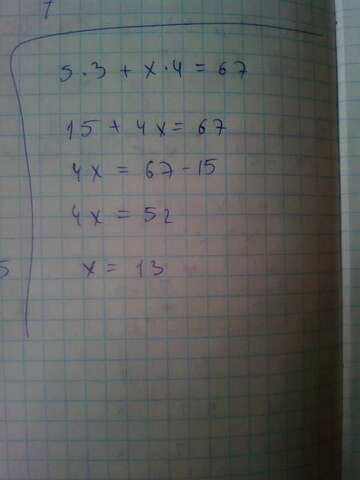 5·3 + x·4 = 67
15 + 4x = 67
4x = 67 - 15
4x = 52
x = 13
5